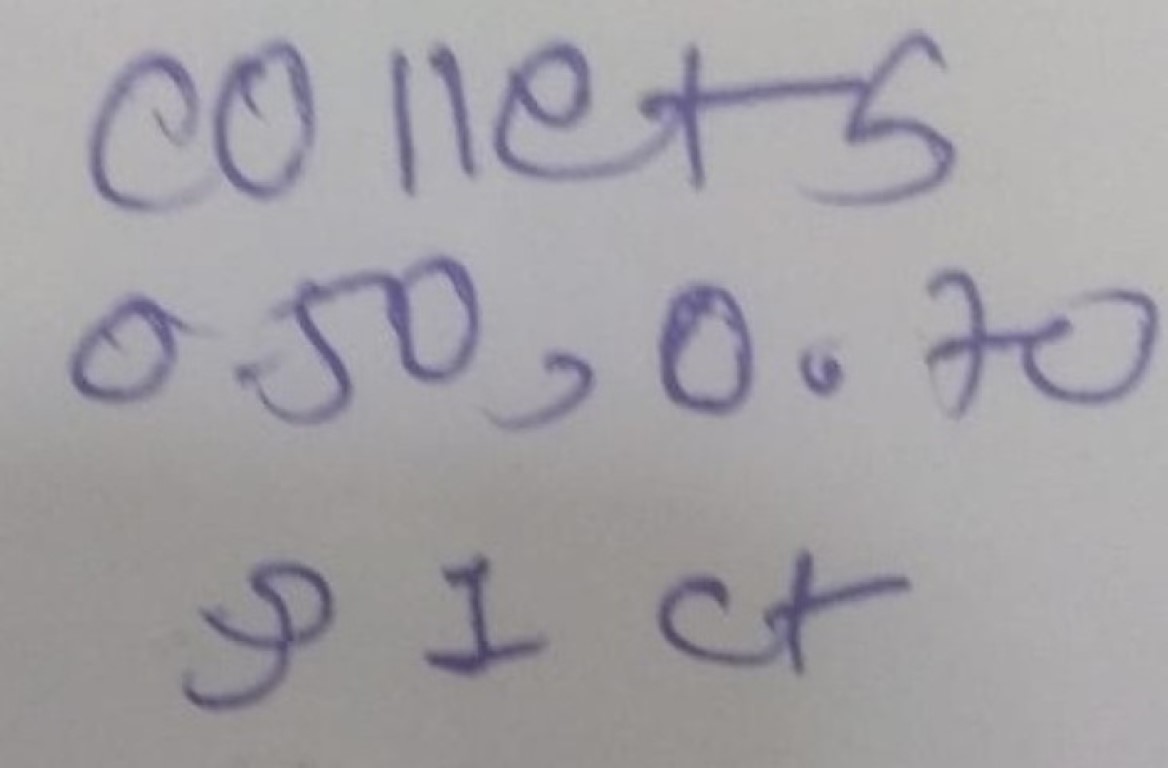 collets
0.50, 0.70
و 1 ct